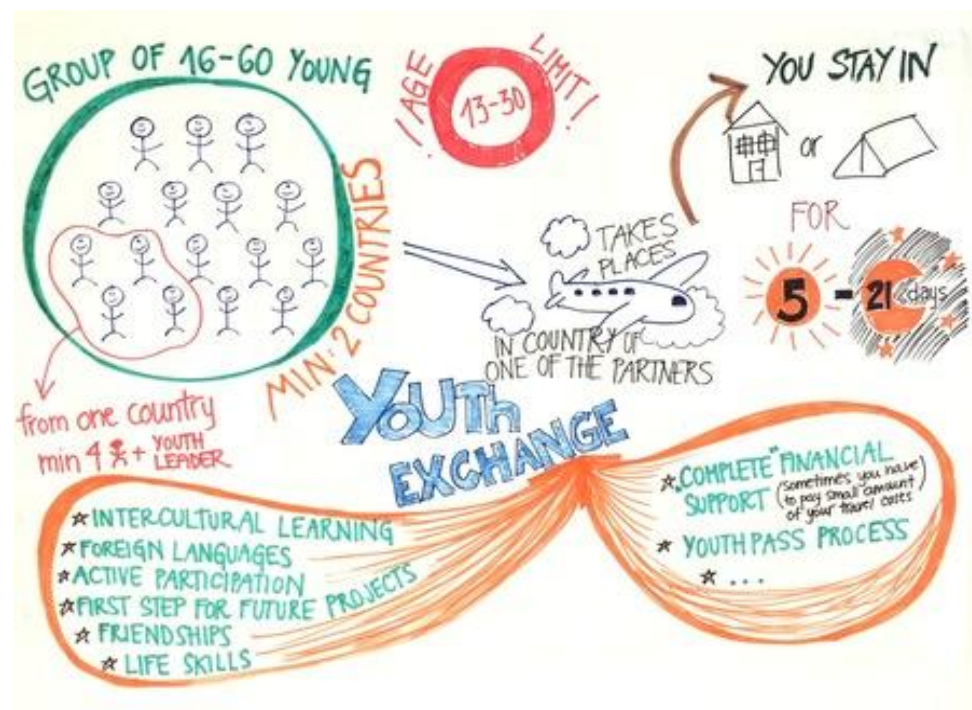 GROUP OF 16-60 YOUNG
! AGE
LIMIT!
13-30
YOU STAY IN
or
FOR
5 - 21 days
MIN: 2 COUNTRIES
TAKES
PLACES
IN COUNTRY OF
ONE OF THE PARTNERS
from one country
min 4 + YOUTH
LEADER
YOUTH
EXCHANGE
INTERCULTURAL LEARNING
FOREIGN LANGUAGES
ACTIVE PARTICIPATION
FIRST STEP FOR FUTURE PROJECTS
FRIENDSHIPS
LIFE SKILLS
„COMPLETE" FINANCIAL
SUPPORT (sometimes you have
to pay small amount
of your travel costs)
YOUTHPASS PROCESS
...